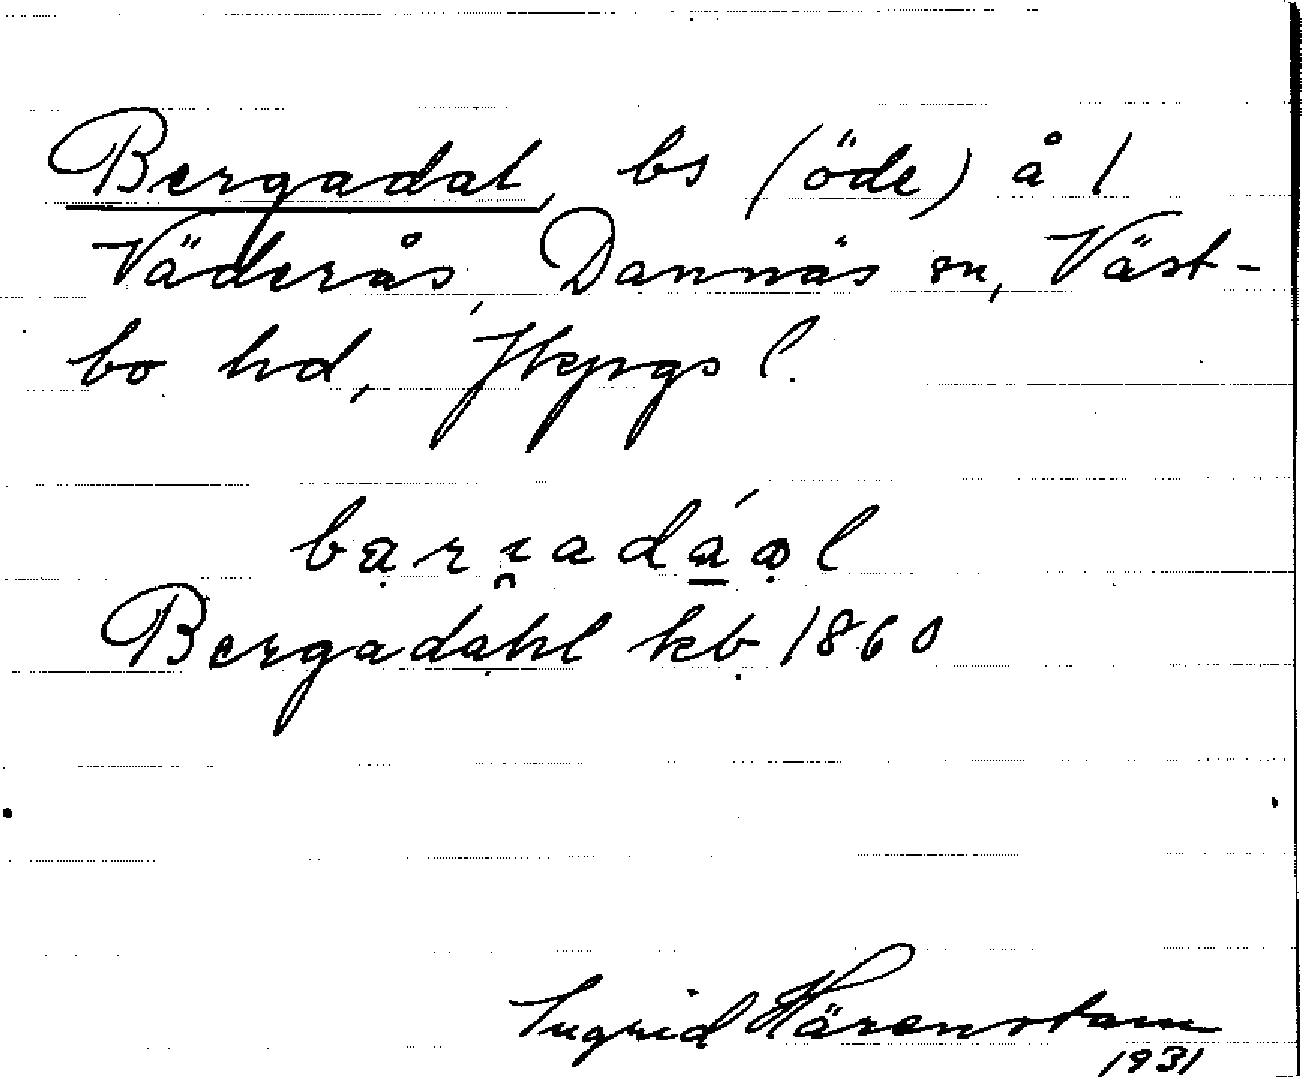 Bergadal, bs (öde) å 1
Väderås, Dannäs sn, Väst-
bo hd, Jkpgs l.
Bergadahl kb 1860
Ingrid Härenstam
1931